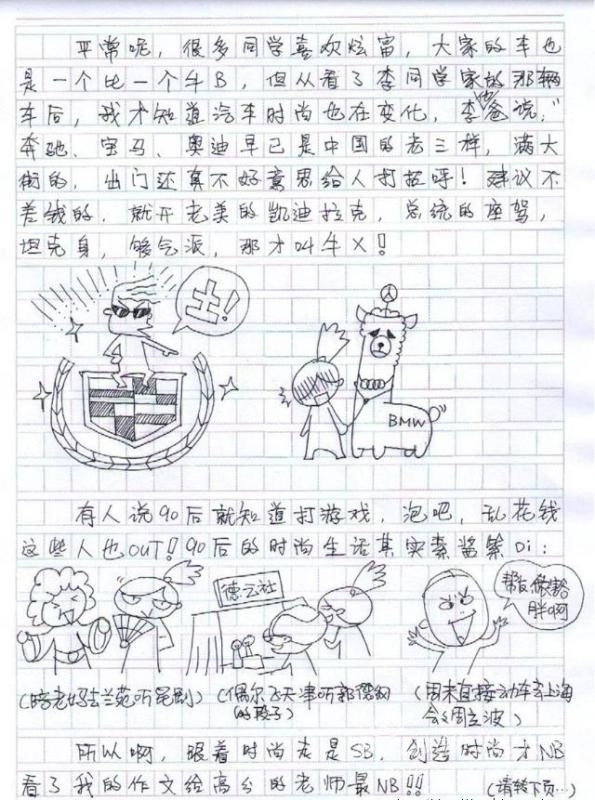 平常呢，很多同学喜欢炫富，大家的车也
是一个比一个牛B，但从看了李同学家的那辆
车后，我才知道汽车时尚也在变化，李他爸说，"
奔驰、宝马、奥迪早已是中国的老三样，满大
街的，出门还真不好意思给人打招呼！建议不
差钱的，就开老美的凯迪拉克，总统的座驾，
坦克身，够气派，那才叫牛X！
土！
BMW
有人说90后就知道打游戏，泡吧，乱花钱
这些人也OUT！90后的时尚生活其实素酱紫Di：
德云社
(陪老妈去兰苑听昆剧)
(偶尔飞天津听郭德纲
的段子)
(周末直接动车去上海
会会周立波)
所以啊，跟着时尚走是SB，创造时尚才NB
看了我的作文给高分的老师最NB!!
(请转下页…)